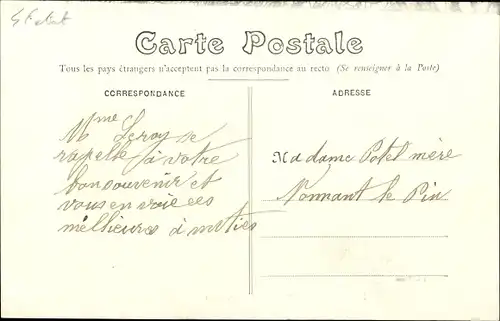 Carte Postale
Tous les pays étrangers n'acceptent pas la correspondance au recto (Se renseigner à la Poste)
CORRESPONDANCE
ADRESSE
Mme Leroy se
rapelle à votre
bon souvenir et
vous envoie ces
meilheures amities
Madame Potel mère
Nonnant le Pin